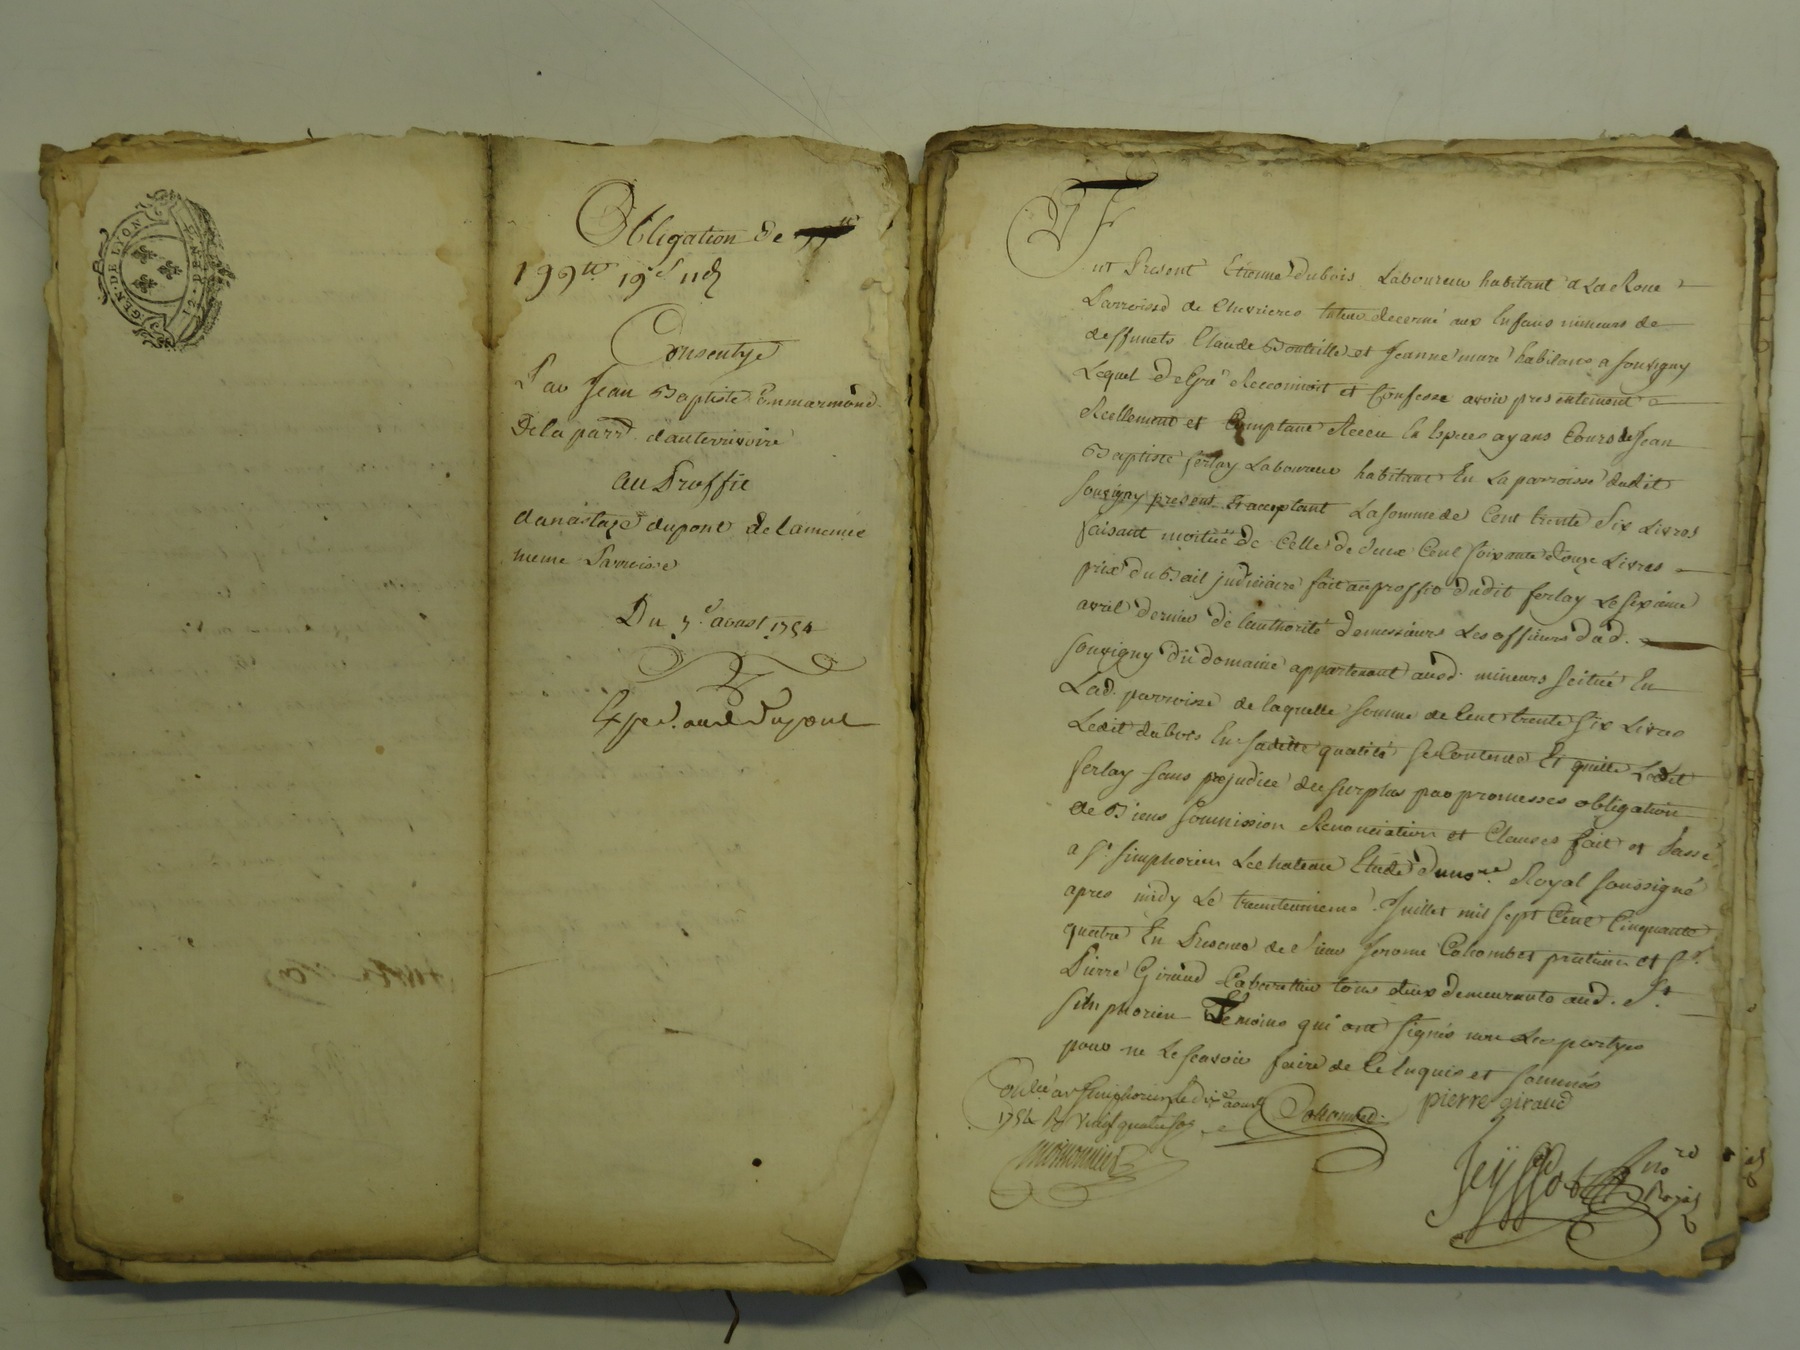 GEN. DE LYON
12. DEN.
Obligation de
199tt 19s 11d
Consentye
Par Jean Baptiste Enmarmond
De la parr. dauterivoire
au Proffit
danastaze dupont de la meme
meme Parroisse
Du 7e aoust 1754
Exped. aud. Dupont
Fut Present Etienne Dubois Laboureur habitant a La Roue
Parroisse de Chevrieres tuteur decerné aux Enfans mineurs de
deffunets Claude Bouteille et Jeanne mure habitans a Souvigny
Lequel de Gré Reconnoit et Confesse avoir presentement
Reellement et Comptant Receu En Especes ayans Cours de Jean
Baptiste ferlay Laboureur habitant En La parroisse dudit
Souvigny present et acceptant La somme de Cent trente Six Livres
faisant moitié de Celle de deux Cent soixante douze Livres
prix du Bail judiciaire fait au proffit dudit ferlay Le sixieme
avril dernier de l'authorité de messieurs Les officiers dud.
Souvigny du domaine appartenant auxd. mineurs scitué En
Lad. parroisse de laquelle somme de Cent trente six Livres
Ledit dubois En sadette qualité se Contente Et quitte Ledit
ferlay sans prejudice du surplus par promesses obligation
de Biens soumission Renonciation et Clauses fait et Passé
a St. simphorien Le Chateau Etude du nore. Royal soussigné
apres midy Le trenteunieme Juillet mil sept Cent Cinquante
quatre En Presence de Sieur Jerome Cohombet praticien et Sr.
Pierre Giraud Cabarettier tous deux demeurants aud. St.
simphorien Temoins qui ont signés non Les partyes
pour ne Le scavoir faire de Ce Enquis et sommés
Collé a St simphorien le dix aoust
1754 R. vingt quatre sols
Cohombet
pierre giraud
nore
Royal